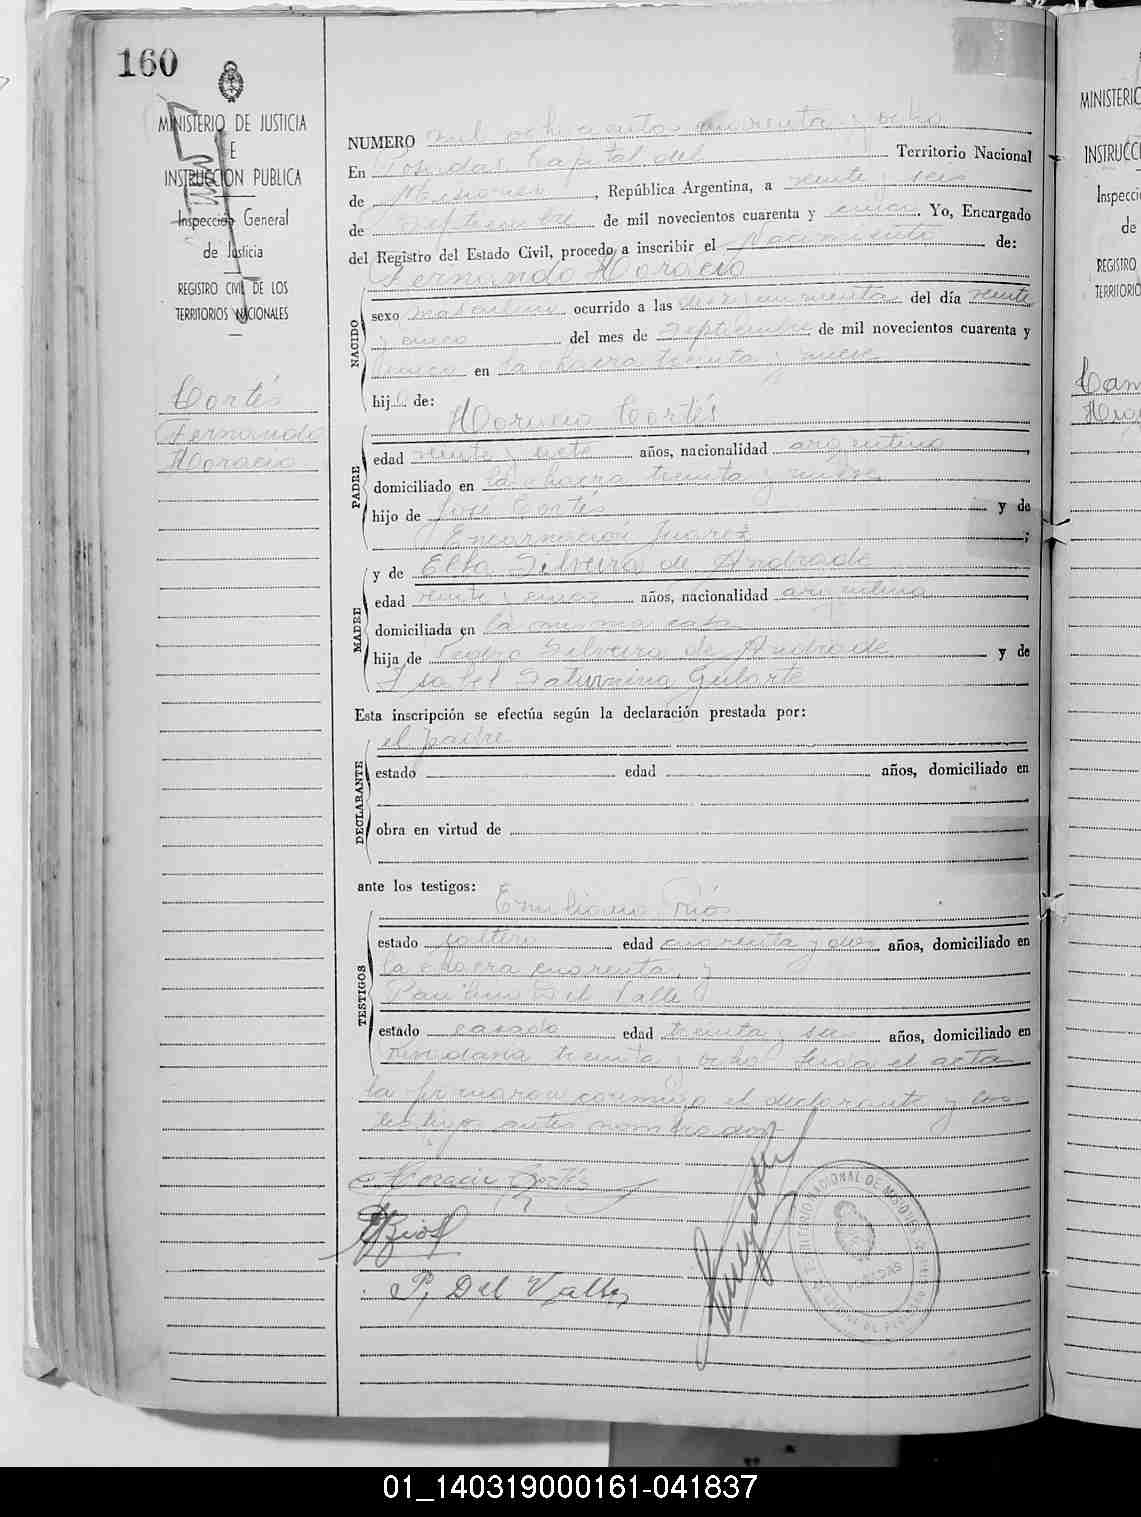 160
MINISTERIO DE JUSTICIA
E
INSTRUCCION PUBLICA
Inspección General
de Justicia
REGISTRO CIVIL DE LOS
TERRITORIOS NACIONALES
Cortés
Fernando
Horacio
NUMERO mil ochocientos cuarenta y ocho
En Posadas Capital del Territorio Nacional
de Misiones, República Argentina, a veinte y seis
de Septiembre de mil novecientos cuarenta y cinco. Yo, Encargado
del Registro del Estado Civil, procedo a inscribir el Nacimiento de:
Fernando Horacio
NACIDO
sexo masculino ocurrido a las del día veinte
y cinco del mes de Septiembre de mil novecientos cuarenta y
cinco en la chacra treinta y nueve
hijo de:
Horacio Cortés
PADRE
edad veinte y siete años, nacionalidad argentina,
domiciliado en la chacra treinta y nueve
hijo de José Cortés y de
Encarnación Juarez;
y de Elba Silveira de Andrade
MADRE
edad veinte y cinco años, nacionalidad argentina,
domiciliada en la misma casa
hija de Pedro Silveira de Andrade y de
Isabel Saturnina Gularte
Esta inscripción se efectúa según la declaración prestada por:
el padre
DECLARANTE
estado edad años, domiciliado en
obra en virtud de
ante los testigos:
Emiliano Ríos
TESTIGOS
estado soltero edad cuarenta y dos años, domiciliado en
la chacra cuarenta, y
Paulino Del Valle
estado casado edad treinta y seis años, domiciliado en
Rivadavia treinta y ocho Leída el acta
la firmaron conmigo el declarante y los
testigos antes nombrados
Horacio Cortés
E Rios
P. Del Valle
TERRITORIO NACIONAL DE MISIONES
POSADAS
MINISTERIC
INSTRUCC
Inspecci
de
REGISTRO
TERRITORIO
01_140319000161-041837